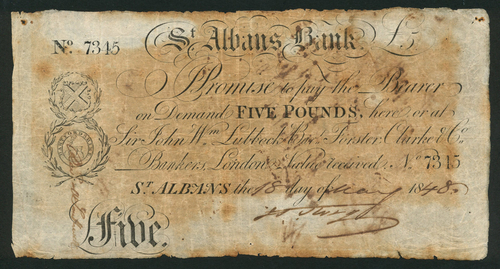 St Albans Bank. £5
No. 7345
I Promise to pay the Bearer
on Demand FIVE POUNDS, here or at
Sir John Wm. Lubbock Forster Clarke & Co.
Bankers, London, Value received. No 7345
ST. ALBANS the 18 day of May 1848
Five.